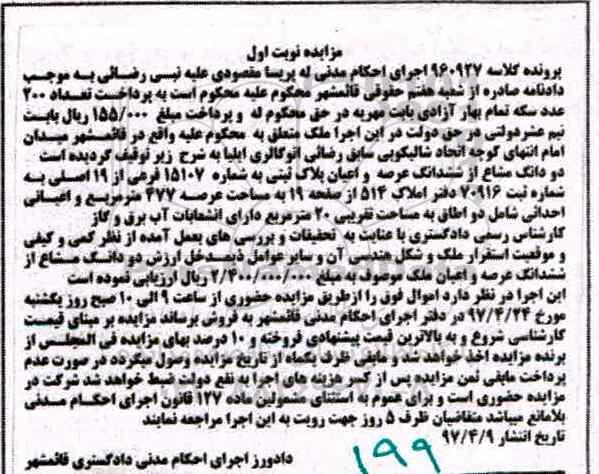 مزایده نوبت اول
پرونده کلاسه ۹۶۰۹۲۷ اجرای احکام مدنی له پریسا مقصودی علیه نبی رضائی به موجب
دادنامه صادره از شعبه هفتم حقوقی قائمشهر محکوم علیه محکوم است به پرداخت تعداد ۲۰۰
عدد سکه تمام بهار آزادی بابت مهریه در حق محکوم له و پرداخت مبلغ ۱۵۵/۰۰۰ ریال بابت
نیم عشردولتی در حق دولت در این اجرا ملک متعلق به محکوم علیه واقع در قائمشهر میدان
امام انتهای کوچه اتحاد شالیکوبی سابق رضائی اتوگالری ایلیا به شرح زیر توقیف گردیده است
دو دانگ مشاع از ششدانگ عرصه و اعیان پلاک ثبتی به شماره ۱۵۱۰۷ فرعی از ۱۹ اصلی به
شماره ثبت ۷۰۹۱۶ دفتر املاک ۵۱۴ از صفحه ۱۹ به مساحت عرصه ۴۷۷ مترمربع و اعیانی
احداثی شامل دو اطاق به مساحت تقریبی ۲۰ مترمربع دارای انشعابات آب برق و گاز
کارشناس رسمی دادگستری با عنایت به تحقیقات و بررسی های بعمل آمده از نظر کمی و کیفی
و موقعیت استقرار ملک و شکل هندسی آن و سایر عوامل ذیمدخل ارزش دو دانگ مشاع از
ششدانگ عرصه و اعیان ملک موصوف به مبلغ ۲/۴۰۰/۰۰۰/۰۰۰ ریال ارزیابی نموده است
این اجرا در نظر دارد اموال فوق را ازطریق مزایده حضوری از ساعت ۹ الی ۱۰ صبح روز یکشنبه
مورخ ۹۷/۴/۲۴ در دفتر اجرای احکام مدنی قائمشهر به فروش برساند مزایده بر مبنای قیمت
کارشناسی شروع و به بالاترین قیمت پیشنهادی فروخته و ۱۰ درصد بهای مزایده فی المجلس از
برنده مزایده اخذ خواهد شد و مابقی ظرف یکماه از تاریخ مزایده وصول میگردد در صورت عدم
پرداخت مابقی ثمن مزایده پس از کسر هزینه های اجرا به نفع دولت ضبط خواهد شد شرکت در
مزایده حضوری است و برای عموم به استثنای مشمولین ماده ۱۲۷ قانون اجرای احکام مدنی
بلامانع میباشد متقاضیان ظرف ۵ روز جهت رویت به این اجرا مراجعه نمایند
تاریخ انتشار ۹۷/۴/۹
دادورز اجرای احکام مدنی دادگستری قائمشهر
۱۹۹